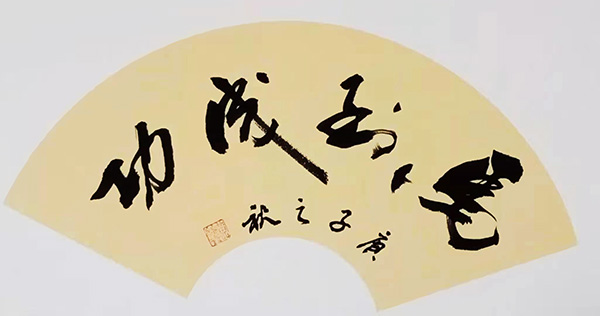 馬到成功
庚子之秋